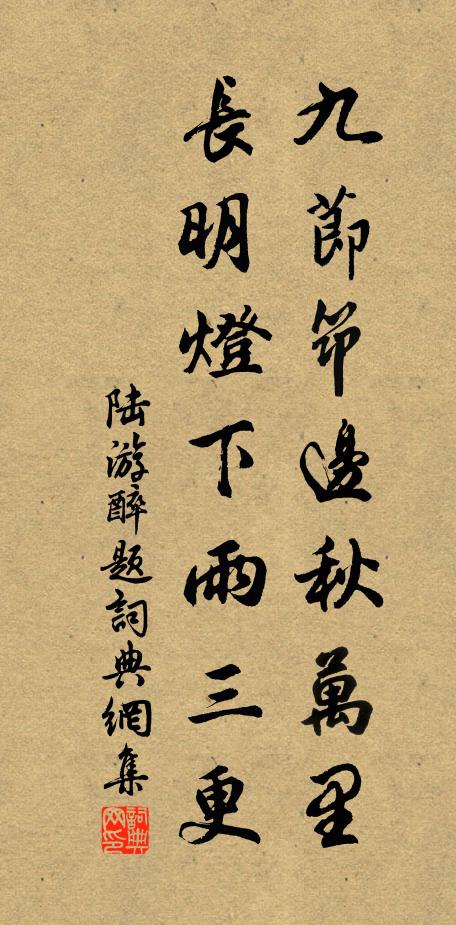 九節筇邊秋萬里
長明燈下雨三更
陆游醉题詞典網集
詞典网印